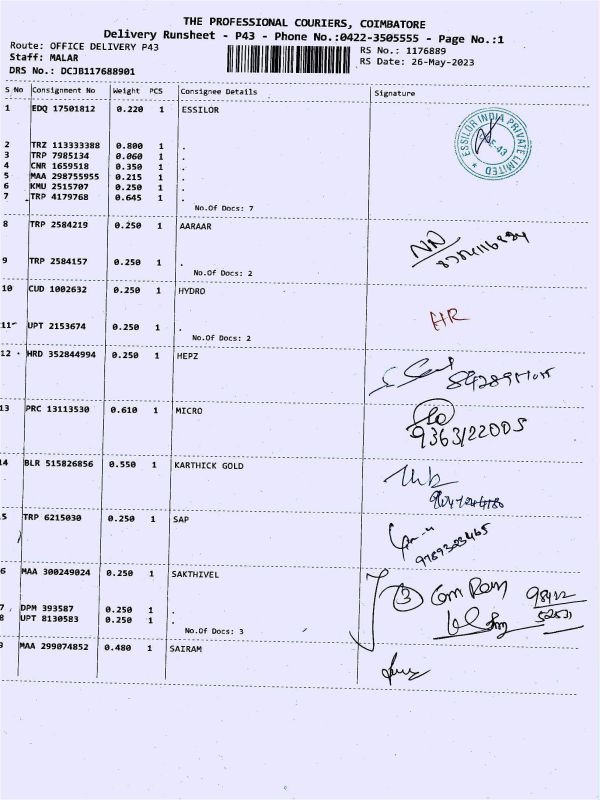 THE PROFESSIONAL COURIERS, COIMBATORE
Delivery Runsheet - P43 - Phone No.:0422-3505555 - Page No.:1
Route: OFFICE DELIVERY P43
Staff: MALAR
DRS No.: DCJB117688901
RS No.: 1176889
RS Date: 26-May-2023
S No Consignment No Weight PCS Consignee Details Signature
1 EDQ 17501812 0.220 1 ESSILOR
ESSILOR INDIA PRIVATE LIMITED
2 TRZ 113333388 0.800 1 .
3 TRP 7985134 0.060 1 .
4 CNR 1659518 0.350 1 .
5 MAA 298755955 0.215 1 .
6 KMU 2515707 0.250 1 .
7 TRP 4179768 0.645 1 .
No.Of Docs: 7
8 TRP 2584219 0.250 1 AARAAR
9 TRP 2584157 0.250 1 .
No.Of Docs: 2
10 CUD 1002632 0.250 1 HYDRO
HR
11 UPT 2153674 0.250 1 .
No.Of Docs: 2
12 HRD 352844994 0.250 1 HEPZ
13 PRC 13113530 0.610 1 MICRO
14 BLR 515826856 0.550 1 KARTHICK GOLD
5 TRP 6215030 0.250 1 SAP
6 MAA 300249024 0.250 1 SAKTHIVEL
3
7 DPM 393587 0.250 1 .
8 UPT 8130583 0.250 1 .
No.Of Docs: 3
9 MAA 299074852 0.480 1 SAIRAM